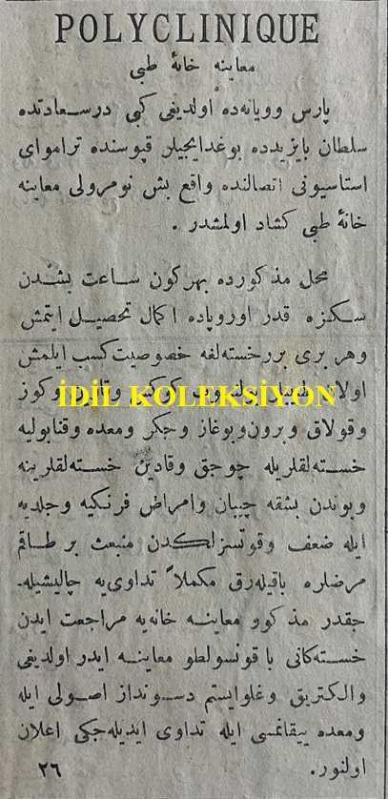 POLYCLINIQUE
معاینه خانهٔ طبی
پارس وویانه‌ده اولدیغی کبی درسعادتده
سلطان بایزیدده بوغدایجیلر قپوسنده تراموای
استاسیونی اتصالنده واقع بش نومرولی معاینه
خانهٔ طبی کشاد اولمشدر .
محل مذکورده بهرکون ساعت بشدن
سکزه قدر اوروپاده اکمال تحصیل ایتمش
وهر بری بررخسته‌لغه خصوصیت کسب ایلمش
اولان
İDİL KOLEKSİYON
وکوز
وقولاق وبرون وبوغاز وجکر ومعده وقنابولیه
خسته‌لقلریله چوجق وقادین خسته‌لقلرینه
وبوندن بشقه چیبان وامراض فرنکیه وجلدیه
ایله ضعف وقوتسزلکدن منبعث بر طاقم
مرضلره باقیله‌رق مکملاً تداوی‌یه چالیشیله‌
جقدر مذکور معاینه خانه‌یه مراجعت ایدن
خستکانی با قونسولطو معاینه ایدر اولدیغی
والکتریق وغلوایستم دسونداز اصولی ایله
ومعده ییقانمسی ایله تداوی ایدیله‌جکی اعلان
اولنور.
٢٦